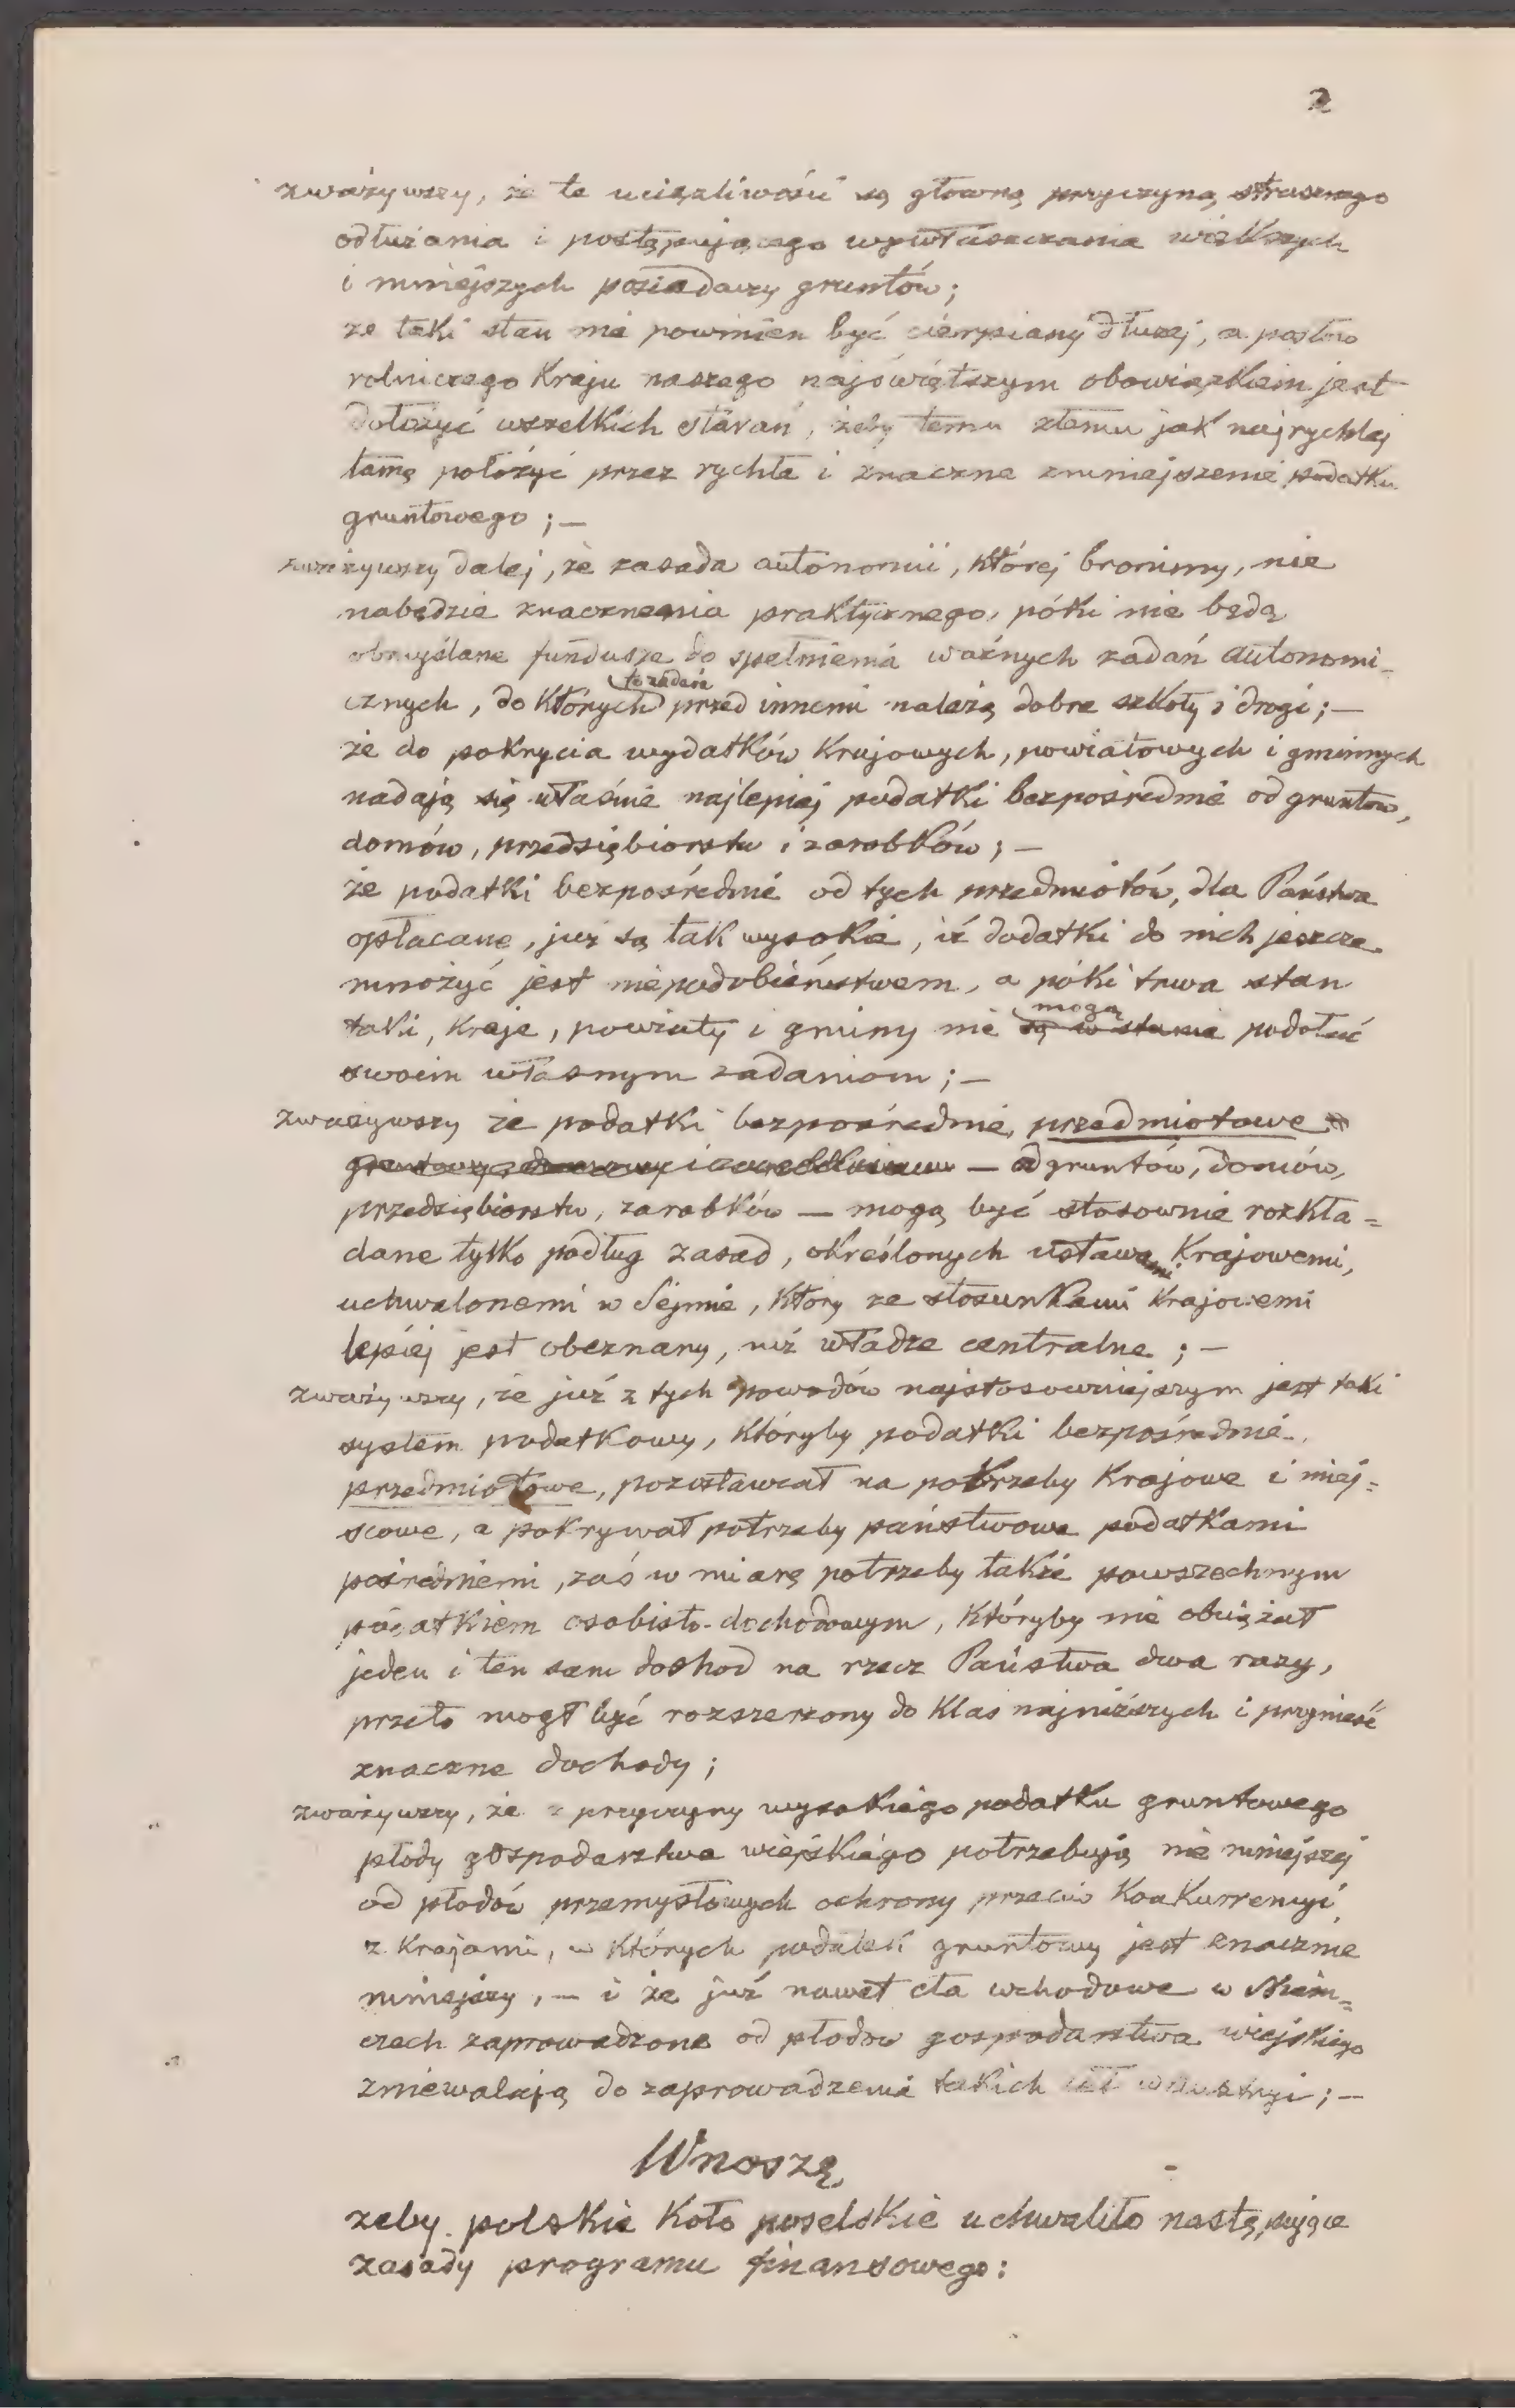 2
zważywszy, że te uciążliwości są główną przyczyną strasznego
odłużania i postępującego wywłaszczania większych
i mniejszych posiadaczy gruntów;
że taki stan nie powinien być cierpiany dłużej, a posłów
rolniczego Kraju naszego najświętszym obowiązkiem jest
dołożyć wszelkich starań, żeby temu złemu jak najrychlej
tamę położyć przez rychłe i znaczne zmniejszenie podatku
gruntowego ; —
zważywszy dalej, że zasada autonomii, której bronimy, nie
nabędzie znaczenia praktycznego, póki nie będą
obmyślane fundusze do spełnienia ważnych zadań autonomi-
cznych, do których przed innemi należą dobre szkoły i drogi; —
te zadań
że do pokrycia wydatków Krajowych, powiatowych i gminnych
nadają się właśnie najlepiej podatki bezpośrednie od gruntów,
domów, przedsiębiorstw i zarobków; —
że podatki bezpośrednie od tych przedmiotów, dla Państwa
opłacane, już są tak wysokie, iż dodatki do nich jeszcze
mnożyć jest niepodobieństwem, a póki trwa stan
taki, Kraje, powiaty i gminy nie są w stanie podołać
mogą
swoim własnym zadaniom ; —
zważywszy że podatki bezpośrednie, przedmiotowe
— od gruntów, domów,
przedsiębiorstw, zarobków — mogą być stosownie rozkła=
dane tylko podług zasad, określonych ustawami Krajowemi,
uchwalonemi w Sejmie, Który ze stosunkami Krajowemi
lepiej jest obeznany, niż władze centralne ; —
zważywszy, że już z tych powodów najstosowniejszym jest taki
system podatkowy, Któryby podatki bezpośrednie,
przedmiotowe, pozostawiał na potrzeby Krajowe i miej=
scowe, a pokrywał potrzeby państwowe podatkami
pośredniemi, zaś w miarę potrzeby także powszechnym
podatkiem osobisto-dochodowym, Któryby nie obciążał
jeden i ten sam dochod na rzecz Państwa dwa razy,
przeto mogł być rozszerzony do Klas najniższych i przynieść
znaczne dochody ;
zważywszy, że z przyczyny wysokiego podatku gruntowego
płody gospodarstwa wiejskiego potrzebują nie mniejszej
od płodów przemysłowych ochrony przeciw Konkurrencyi
z Krajami, w Których podatek gruntowy jest znacznie
mniejszy, — i że już nawet cła wchodowe w Niem=
czech zaprowadzone od płodów gospodarstwa wiejskiego
zniewalają do zaprowadzenia takich ceł w Austryi ; —
Wnoszę,
żeby polskie Koło poselskie uchwaliło następujące
zasady programu finansowego :